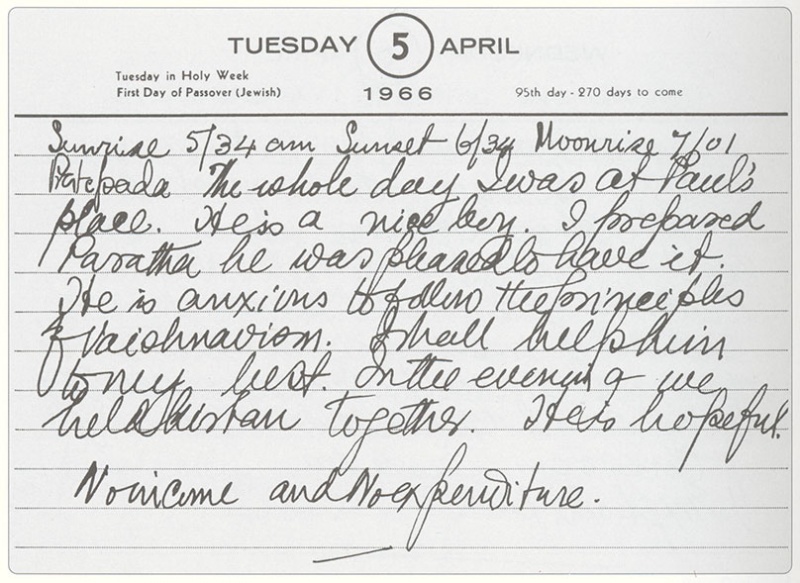 TUESDAY 5 APRIL
Tuesday in Holy Week
First Day of Passover (Jewish)
1966
95th day - 270 days to come
Sunrise 5/34 am Sunset 6/34 Moonrise 7/01
Pratipada The whole day I was at Paul's
place. He is a nice boy. I prepared
Paratha he was pleased to have it.
He is anxious to follow the principles
of Vaishnavism. I shall help him
to my best. In the evening we
held kirtan together. He is hopeful.
No income and No expenditure.